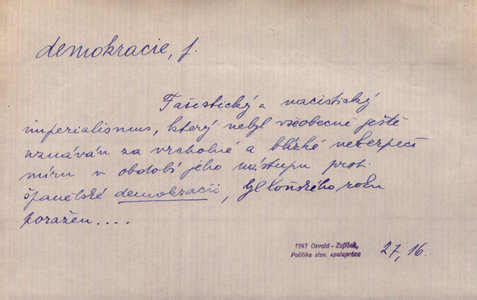 demokracie, f.
Fašistický a nacistický
imperialismus, který nebyl všeobecně ještě
uznáván za vrcholné a blízké nebezpečí
míru v období jeho nástupu proti
španělské demokracii, byl loňského roku
poražen....
1947 Osvald - Zajíček,
Politika slov. spolupráce
27, 16.